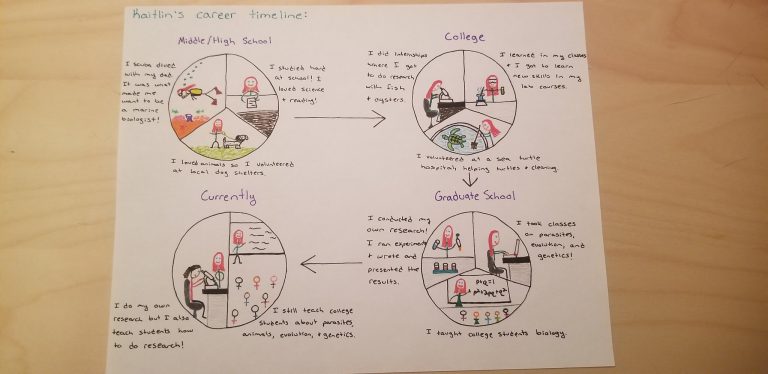 Kaitlin's career timeline:
Middle/High School
I scuba dived
with my dad.
It was what
made me
want to be
a marine
biologist!
I studied hard
at school! I
loved science
+ reading!
I loved animals so I volunteered
at local dog shelters.
College
I did internships
where I got
to do research
with fish
+ oysters.
I learned in my classes
+ I got to learn
new skills in my
lab courses.
I volunteered at a sea turtle
hospital; helping turtles + cleaning.
Graduate School
I conducted my
own research!
I ran experiments
+ wrote and
presented the
results.
I took classes
on parasites,
evolution, and
genetics!
p+q=1
p²+2pq+q²
I taught college students biology.
Currently
I do my own
research but I also
teach students how
to do research!
I still teach college
students about parasites,
animals, evolution, + genetics.